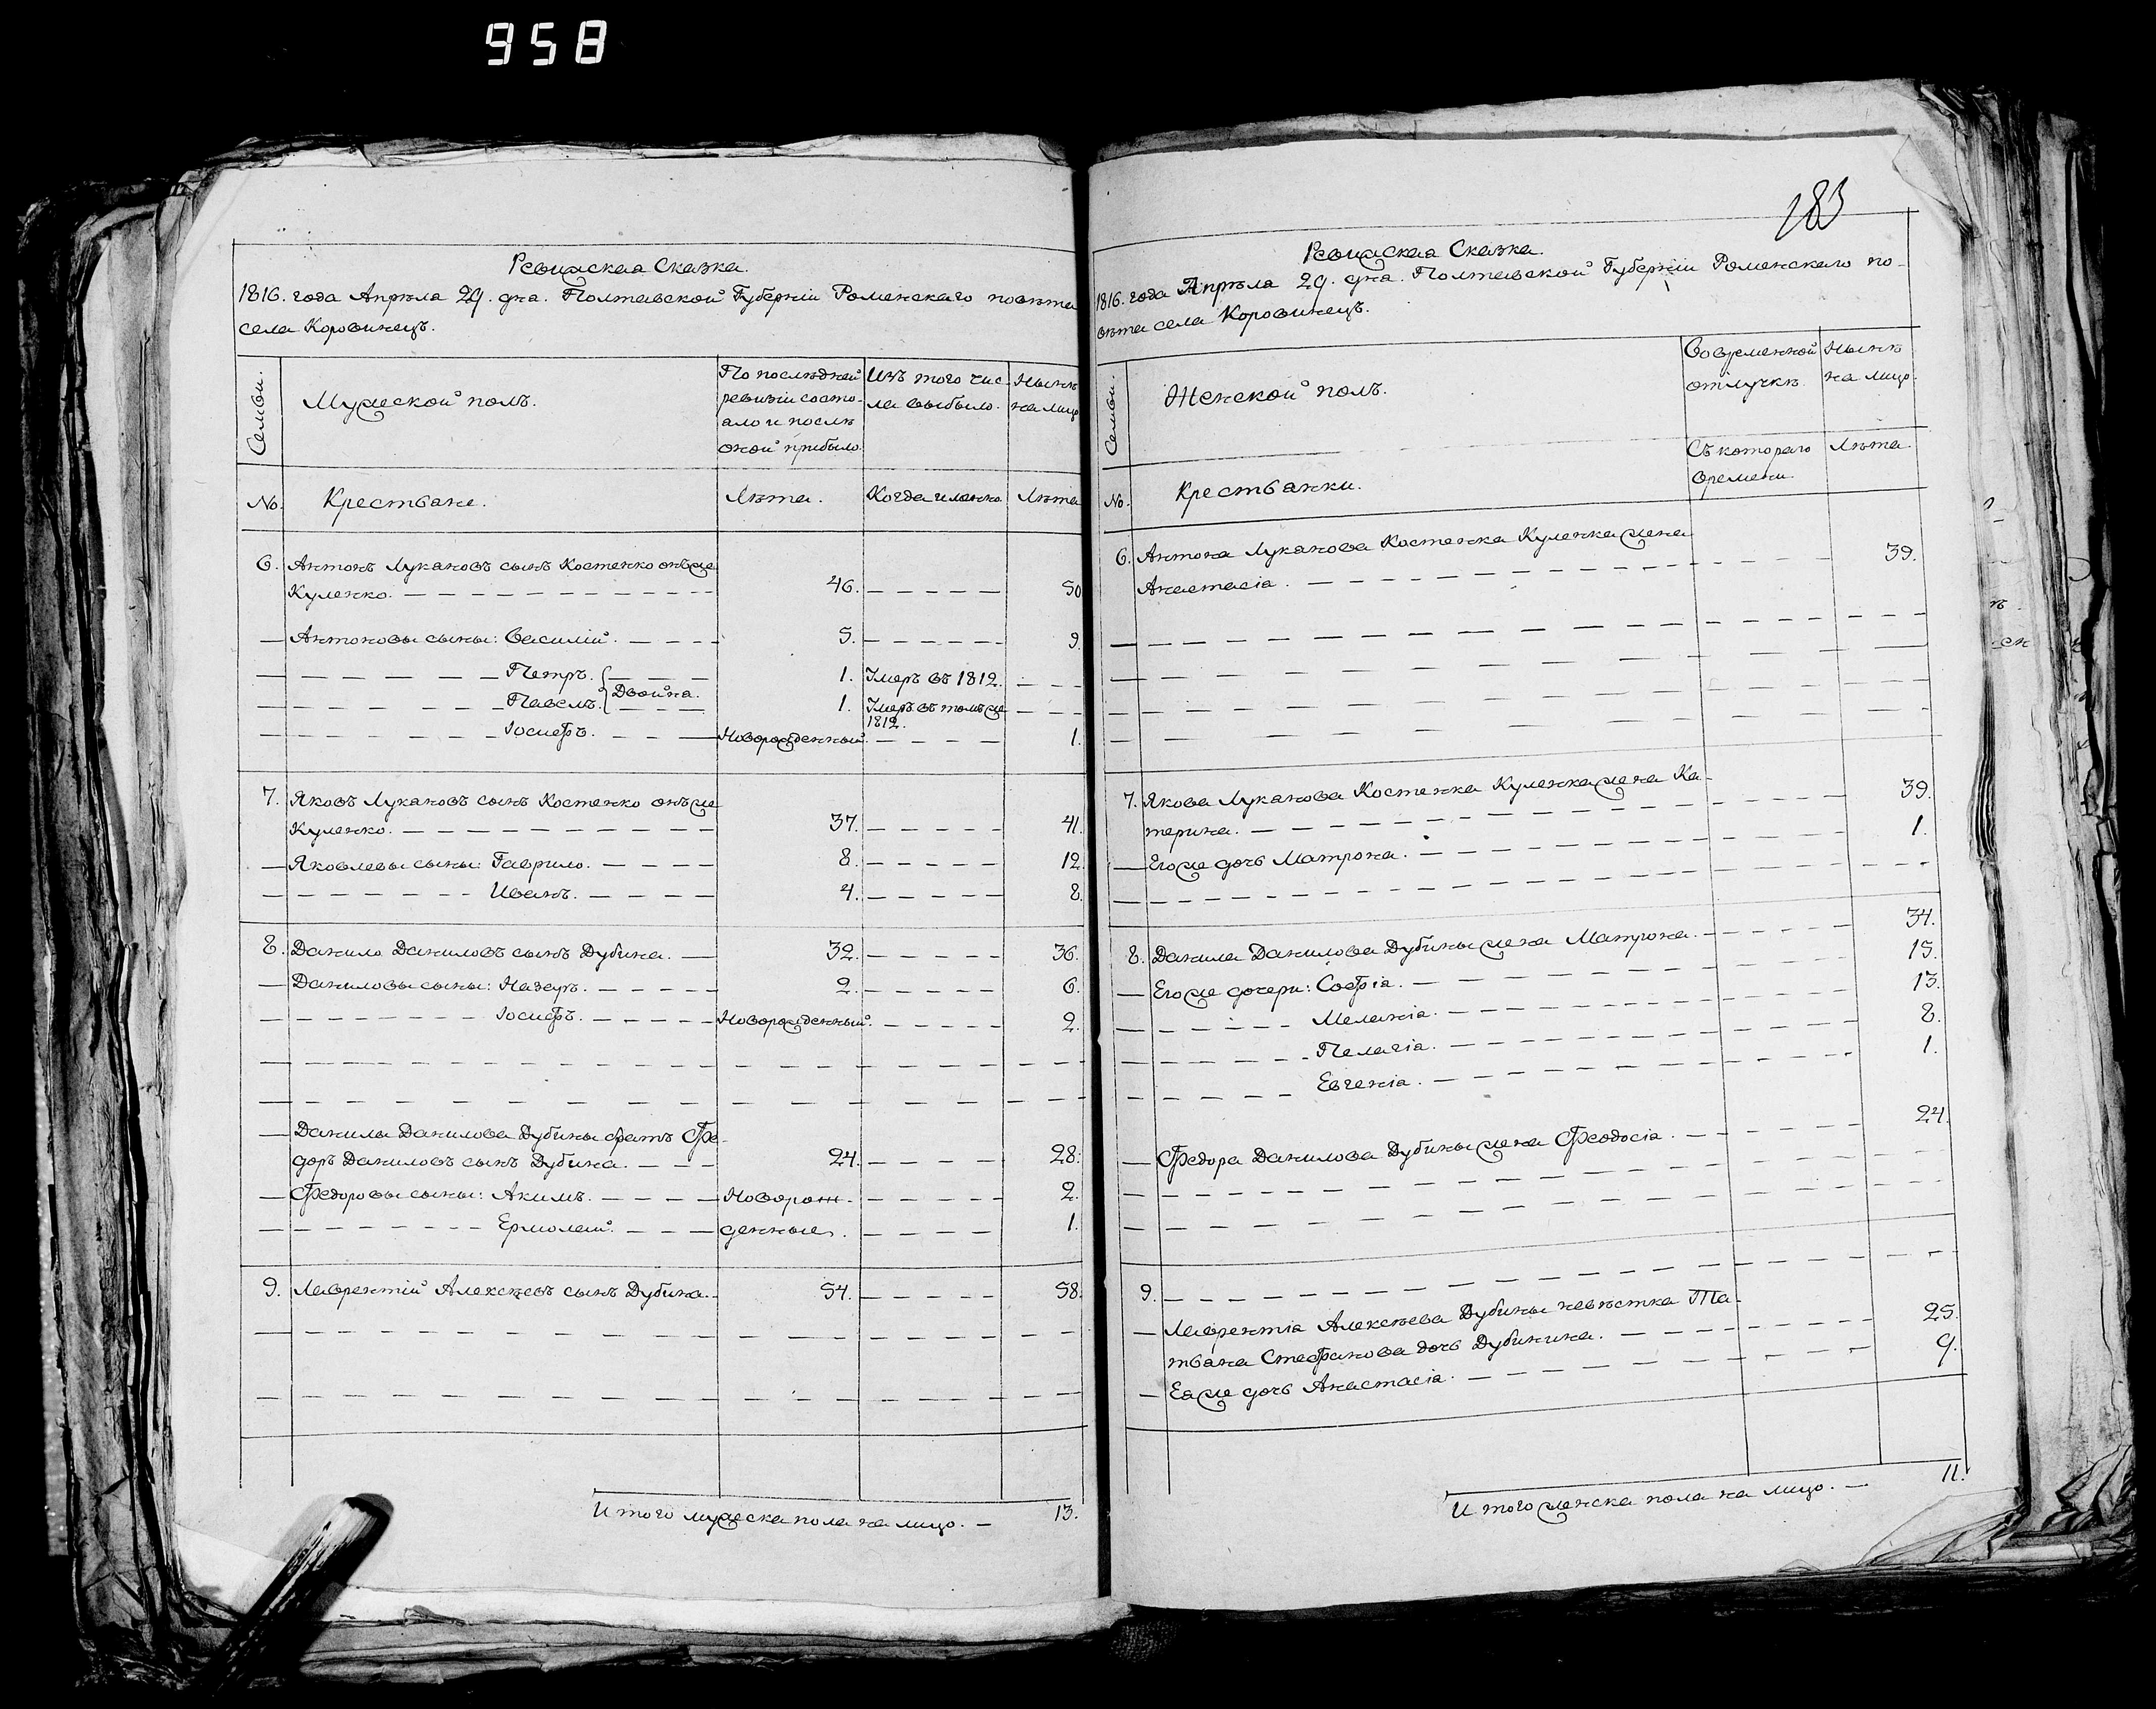 958
Ревижская Сказка.
1816. года Апрѣла 29. дна. Полтавской Губерніи Роменскаго повѣта
села Коровинецъ.
Семьи.
Мужеской полъ.
По послѣдней
ревизіи состо-
ало и послѣ
оной прибыло.
Изъ того чис-
ла выбыло.
Нынѣ
на лицо
No.
Крестьане.
Лѣта.
Когда именно.
Лѣта
6. Антонъ Лукановъ сынъ Костенко онъ же
Куленко. 46. 50
Антоновы сыны: Василій. 5. 9.
Петръ. 1. Умеръ въ 1812.
Двойна.
Павелъ. 1. Умеръ въ томъ же
1812.
Іосифъ. Новорожденный. 1.
7. Яковъ Лукановъ сынъ Костенко онъ же
Куленко. 37. 41.
Яковлевы сыны: Гаврило. 8. 12.
Иванъ. 4. 8.
8. Данило Даниловъ сынъ Дубина. 32. 36.
Даниловы сыны: Назаръ. 2. 6.
Іосифъ. Новорожденный. 2.
Данилы Данилова Дубины братъ Фе-
доръ Даниловъ сынъ Дубина. 24. 28.
Федоровы сыны: Акимъ. Новорож- 2.
Ермолей. денные. 1.
9. Лаврентій Алексѣевъ сынъ Дубина. 54. 58.
И того мужеска пола на лицо. 13.
183
Ревижская Сказка.
1816. года Апрѣла 29. дна. Полтавской Губерніи Роменскаго по-
вѣта села Коровинецъ.
Семьи.
Женской полъ.
Во временной
отлучкѣ.
Нынѣ
на лицо.
Съ котораго
времени.
Лѣта.
No.
Крестьанки.
6. Антона Луканова Костенка Куленка жена
Анастасіа. 39.
7. Якова Луканова Костенка Куленка жена Ка-
терина. 39.
Его же дочь Матрона. 1.
8. Данила Данилова Дубины жена Матрона. 34.
Его же дочери: Софіа. 15.
Меланіа. 13.
Пелагіа. 8.
Евгеніа. 1.
Федора Данилова Дубины жена Феодосіа. 24.
9.
Лаврентіа Алексѣева Дубины невѣстка Та-
тьана Стефанова дочь Дубинина. 25.
Еа же дочь Анастасіа. 9.
И того женска пола на лицо. 11.